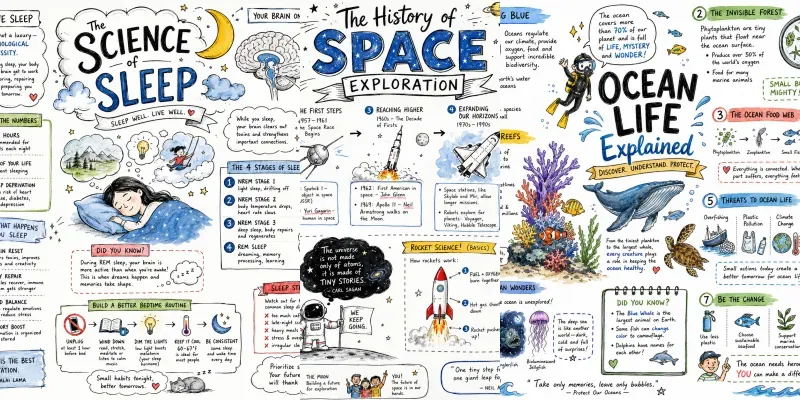 VE SLEEP
a luxury—
OLOGICAL
SSITY.
The
SCIENCE
of
SLEEP
SLEEP WELL. LIVE WELL.
YOUR BRAIN ON
While you sleep,
your brain clears out
toxins and strengthens
important connections.
THE NUMBERS
HOURS
each night
OF YOUR LIFE
sleeping
DEPRIVATION
risk of heart
diabetes,
THE 4 STAGES OF SLEE
1 NREM STAGE 1
light sleep, drifting off
2 NREM STAGE 2
body temperature drops,
heart rate slows
3 NREM STAGE 3
deep sleep, body repairs
and regenerates
4 REM SLEEP
dreaming, memory
processing, learning
WHAT HAPPENS
YOU SLEEP
RESET
REPAIR
BALANCE
BOOST
DID YOU KNOW?
During REM sleep, your brain is
more active than when you're awake!
This is when dreams happen and
memories take shape.
zzz
SLEEP S
BUILD A BETTER BEDTIME ROUTINE
UNPLUG
at least 1 hour
before bed
WIND DOWN
read, stretch,
meditate or
listen to calm
music
DIM THE LIGHTS
low light boosts
melatonin
(your sleep
hormone)
KEEP IT COOL
60-67°F
is ideal for
most people
BE CONSISTENT
same sleep
and wake time
every day
Small habits tonight,
better tomorrows.
IS THE BEST
TATION.
LAI LAMA
Prioritize s
Your future
will thank
The History of
SPACE
EXPLORATION
THE FIRST STEPS
1957-1961
The Space Race
Begins
Sputnik 1 –
Yuri Gagarin –
human in space
3 REACHING HIGHER
1960s – The Decade
of Firsts
1962: First American in
space – John Glenn
1969: Apollo 11 – Neil
Armstrong walks on
the Moon.
4 EXPANDING
OUR HORIZONS
1970s – 1990s
Space stations, like
Skylab and Mir, allow
longer missions.
Robots explore far
planets: Voyager,
Viking, Hubble Telescope
The universe
is not made
only of atoms,
it is made of
TINY STORIES.
- CARL SAGAN
WE
KEEP
GOING.
ROCKET SCIENCE! (BASICS)
How rockets work:
1 FUEL + OXYGEN
burn together
2 Hot gas
3 Rocket
up!
THE MOON
Building a future
for exploration
YOU!
The future of
space is in our
hands.
"One tiny step f
one giant leap fo
- NEIL
G BLUE
Oceans regulate
our climate, provide
oxygen, food and
support incredible
biodiversity.
REEFS
N WONDERS
ocean is unexplored!
Bioluminescent
Jellyfish
The deep sea
is like another
world – dark,
cold and full
of surprises!
The ocean
covers more
than 70% of our
planet and is full
of LIFE, MYSTERY
and WONDER!
OCEAN
LIFE
Explained
DISCOVER. UNDERSTAND. PROTECT.
From the tiniest plankton
to the largest whale,
every creature plays
a role in keeping the
ocean healthy.
DID YOU KNOW?
The Blue Whale is the
largest animal on Earth.
Some fish can change
color to camouflage.
Dolphins have names for
each other!
"Take only memories, leave only bubbles."
– Protect Our Oceans –
2 THE INVISIBLE FOREST
Phytoplankton are tiny
plants that float near
the ocean surface.
Produce over 50% of
the world's oxygen
Food for many
marine animals
SMALL BU
MIGHTY!
3 THE OCEAN FOOD WEB
Phytoplankton
Zooplankton
Small Fi
Everything is connected. When
part suffers, everything feels
5 THREATS TO OCEAN LIFE
Overfishing
Plastic
Pollution
Climate
Change
Small actions today create a
better tomorrow for ocean li
7 BE THE CHANGE
Use less
plastic
Choose
sustainable
seafood
Support
marine
conservation
The ocean needs hero
YOU can make a diffe